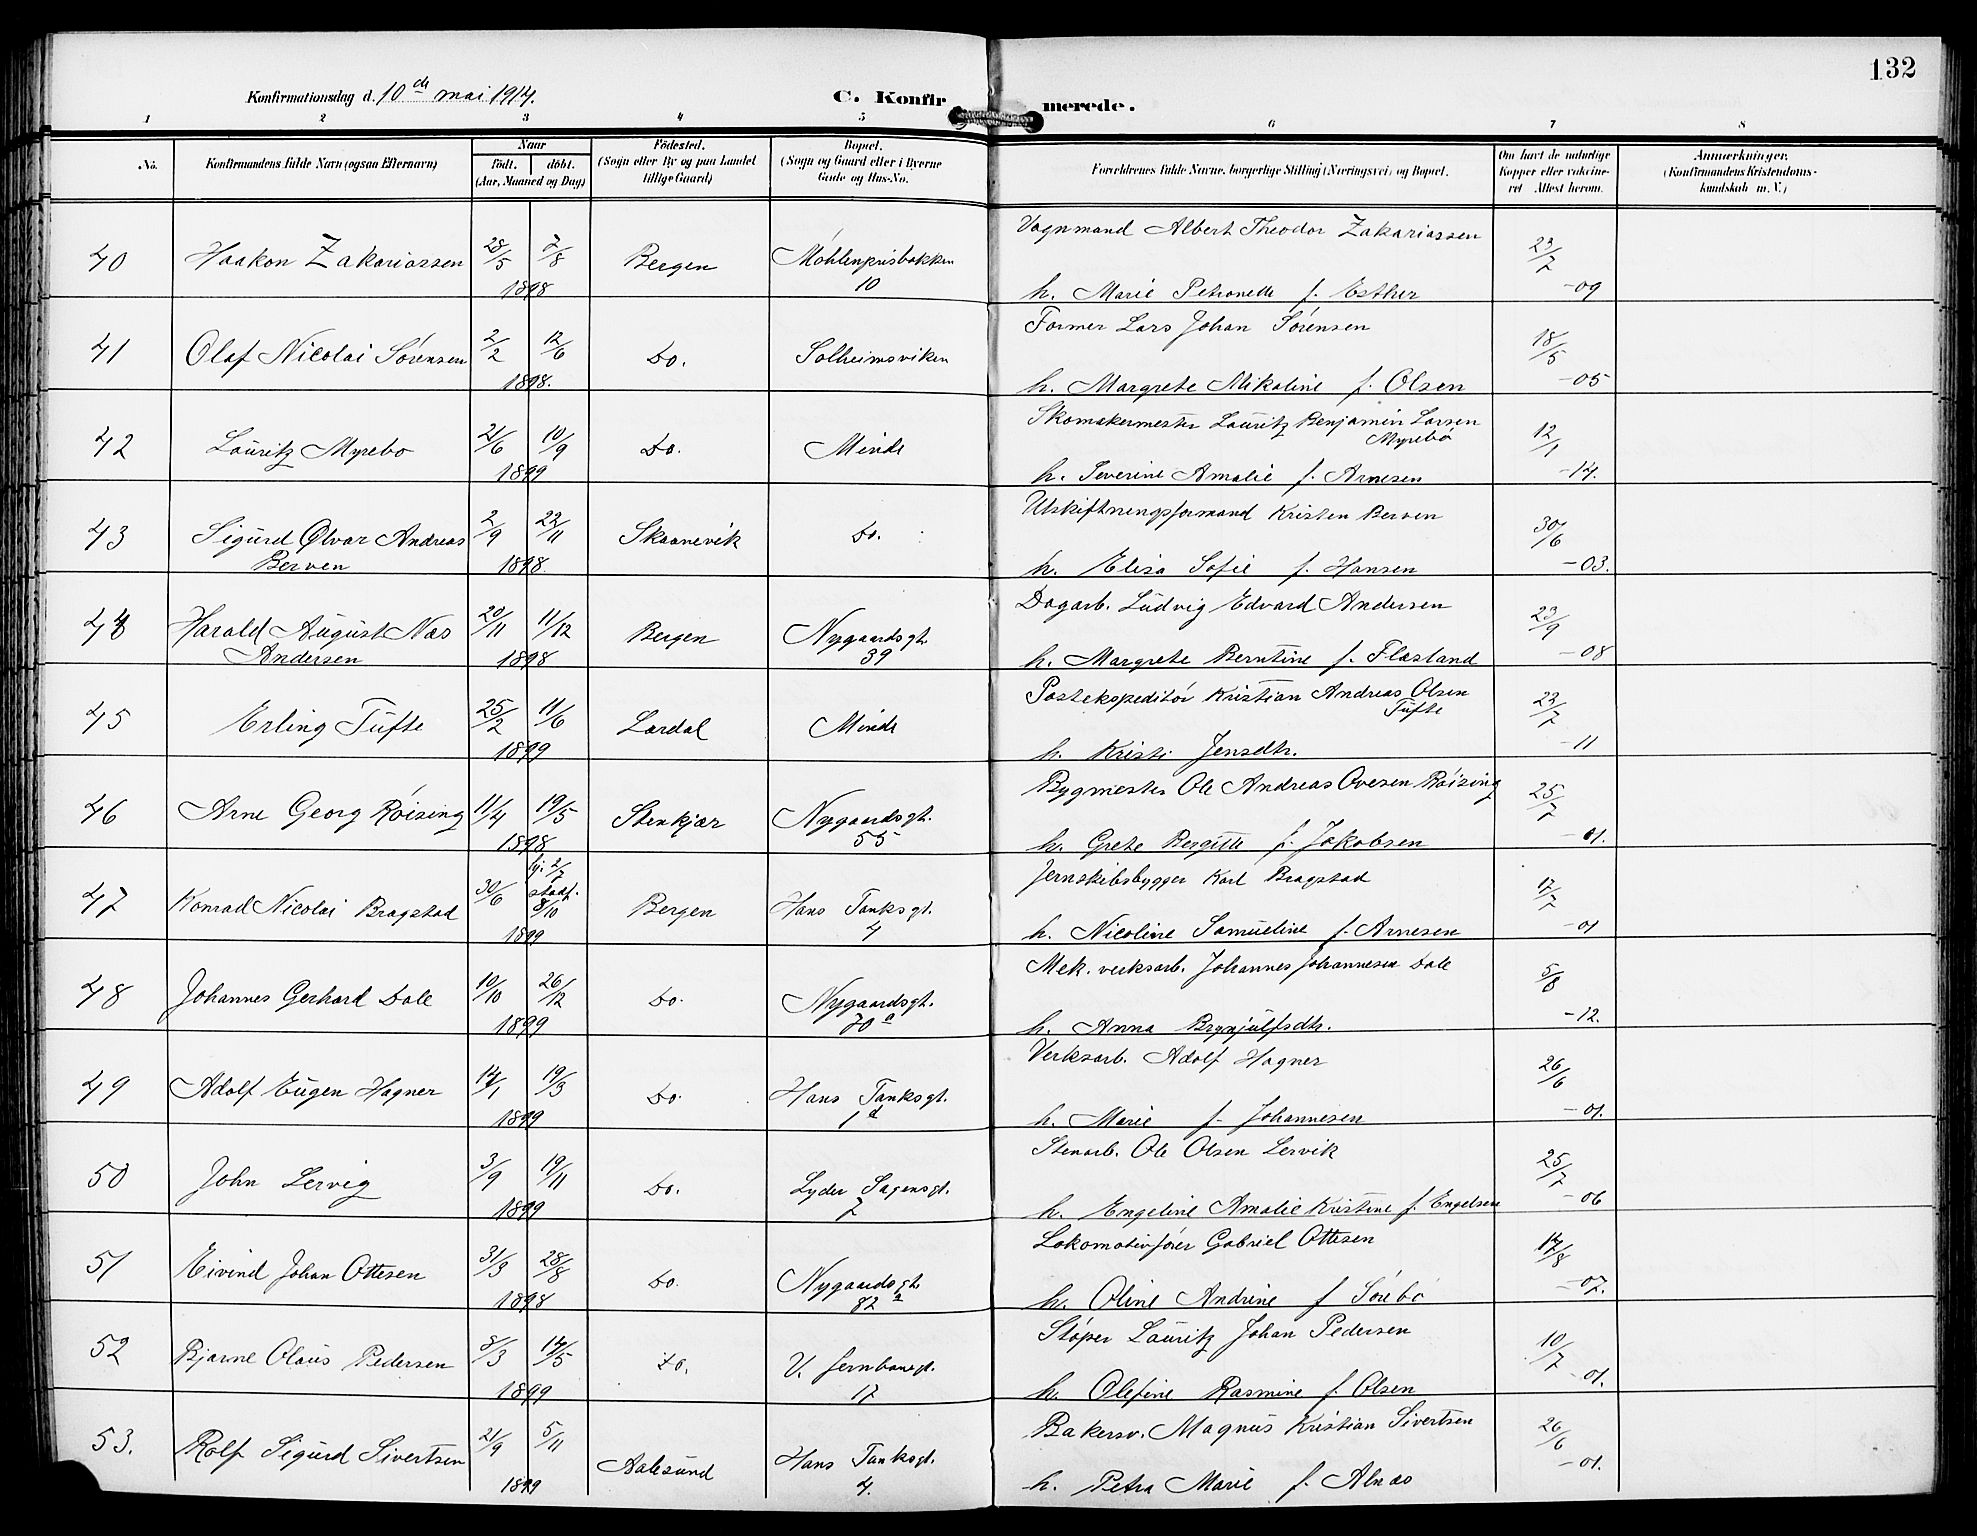 132
Konfirmationsdag d. 10de mai 1914.
C. Konfirmerede.
1 2 3 4 5 6 7 8
No.
Konfirmandens fulde Navn (ogsaa Efternavn)
Naar
født. døbt.
(Aar, Maaned og Dag)
Fødested.
(Sogn eller By og paa Landet
tillige Gaard)
Bopæl.
(Sogn og Gaard eller i Byerne
Gade og Hus-No.
Forældrenes fulde Navne, borgerlige Stilling (Næringsvei) og Bopæl.
Om havt de naturlige
Kopper eller vakcine-
ret Attest herom.
Anmærkninger.
(Konfirmandens Kristendoms-
kundskab m. V.)
40 Haakon Zakariassen 28/5 7/8 1898 Bergen Møhlenprisbakken 10
Vognmand Albert Theodor Zakariassen
h. Marie Petronelle f. Esther
23/7 -09
41 Olaf Nicolai Sørensen 2/2 12/6 1898. Do. Solheimsviken
Former Lars Johan Sørensen
h. Margrete Nikoline f. Olsen
18/5 -05
42 Lauritz Myrebø 21/6 10/9 1899 Do. Minde
Skomakermester Lauritz Benjamin Larsen
Myrebø
h. Severine Amalie f. Arnesen
12/1 -14.
43 Sigurd Ølvar Andreas
Berven 2/9 22/11 1898. Skaanevik Do.
Utskiftningsformand Kristen Berven
h. Elisa Sofie f. Hansen
30/6 -03.
44 Harald August Næs
Andersen 20/11 11/12 1898 Bergen Nygaardsgt. 39
Dagarb. Ludvig Edvard Andersen
h. Margrete Berntine f. Flasland
23/9 -08
45 Erling Tufte 25/2 11/6 1899 Lærdal Minde
Postekspeditør Kristian Andreas Olsen
Tufte
h. Kristi Jensdtr.
23/7 -11
46 Arne Georg Røising 11/4 19/5 1898 Stenkjær Nygaardsgt. 55
Bygmester Ole Andreas Ovesen Røising
h. Grete Bergitte f. Jakobsen
25/7 -01.
47 Konrad Nicolai Bragstad 30/6 hj. 2/7
stadf.
8/10 1899 Bergen Hans Tanksgt. 4
Jernskibsbygger Karl Bragstad
h. Nicoline Samueline f. Arnesen
17/7 -01
48 Johannes Gerhard Dale 10/10 26/12 1899 Do. Nygaardsgt. 70a
Mek. verksarb. Johannes Johannesen Dale
h. Anna Brynjulfsdtr.
5/8 -12.
49 Adolf Eugen Hagner 14/1 19/3 1899 Do. Hans Tanksgt. 1d
Verksarb. Adolf Hagner
h. Marie f. Johannesen
26/6 -01.
50 John Lervig 3/9 19/11 1899 Do. Lyder Sagensgt. 7
Stenarb. Ole Olsen Lervik
h. Engeline Amalie Kristine f. Engelsen
25/7 -06
51 Eivind Johan Ottesen 31/3 28/8 1898 Do. Nygaardsgt. 82a
Lokomotivfører Gabriel Ottesen
h. Oline Andrine f Sørebø
14/8 -07.
52 Bjarne Olaus Pedersen 8/3 14/5 1899 Do. V. Jernbanegt. 17
Støper Lauritz Johan Pedersen
h. Olefine Rasmine f. Olsen
10/7 -01.
53. Rolf Sigurd Sivertsen 21/9 5/11 1899 Aalesund Hans Tanksgt. 4.
Bakersv. Magnus Kristian Sivertsen
h. Petra Marie f. Alnæs
26/6 -01.